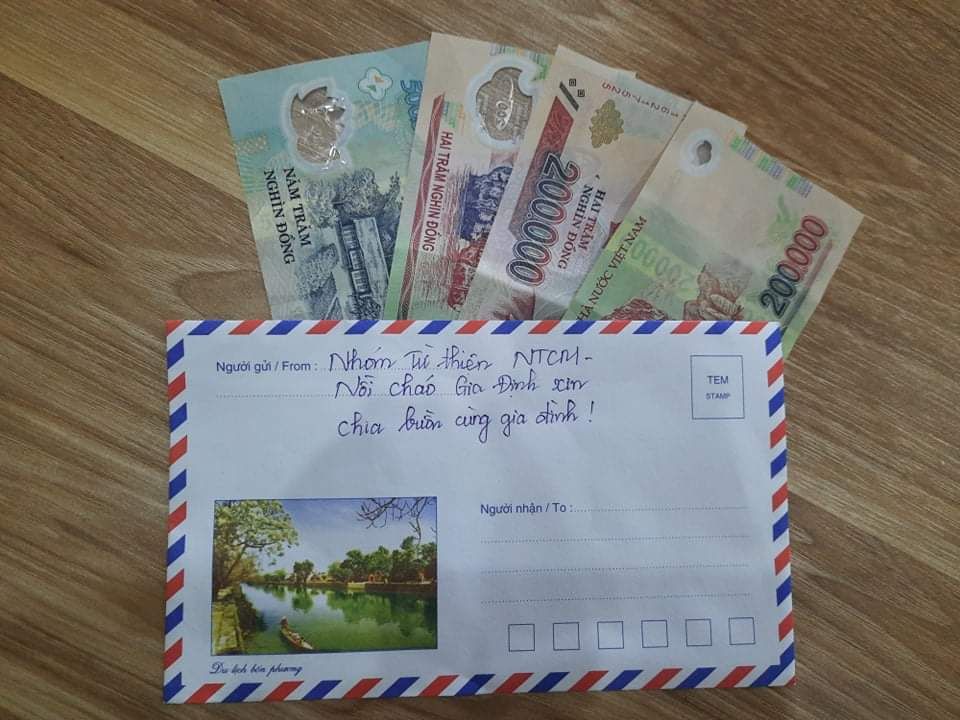 500
NĂM TRĂM
NGHÌN ĐỒNG
HAI TRĂM NGHÌN ĐỒNG
200.000
HAI TRĂM
NGHÌN ĐỒNG
NHÀ NƯỚC VIỆT NAM
200.000
Người gửi / From : Nhóm Từ thiện NTCM-
Nồi cháo Gia Định xin
chia buồn cùng gia đình !
TEM
STAMP
Người nhận / To :
Du lịch bốn phương